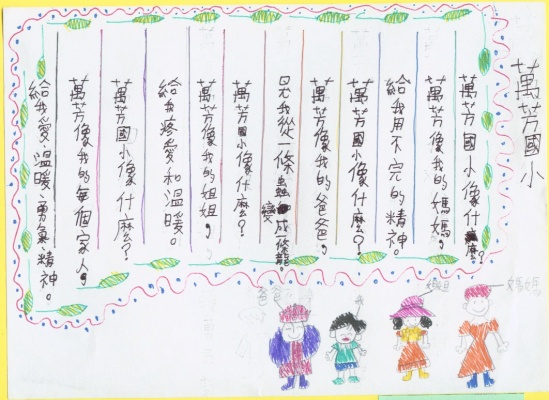 萬芳國小
萬芳國小像什麼?
萬芳像我的媽媽,
給我用不完的精神。
萬芳國小像什麼?
萬芳像我的爸爸。
我從一條蟲變成一條龍。
萬芳國小像什麼?
萬芳像我的姐姐,
給我疼愛和溫暖。
萬芳國小像什麼?
萬芳像我的每個家人,
給我愛、溫暖、勇氣、精神。
媽媽
姐姐
我
爸爸